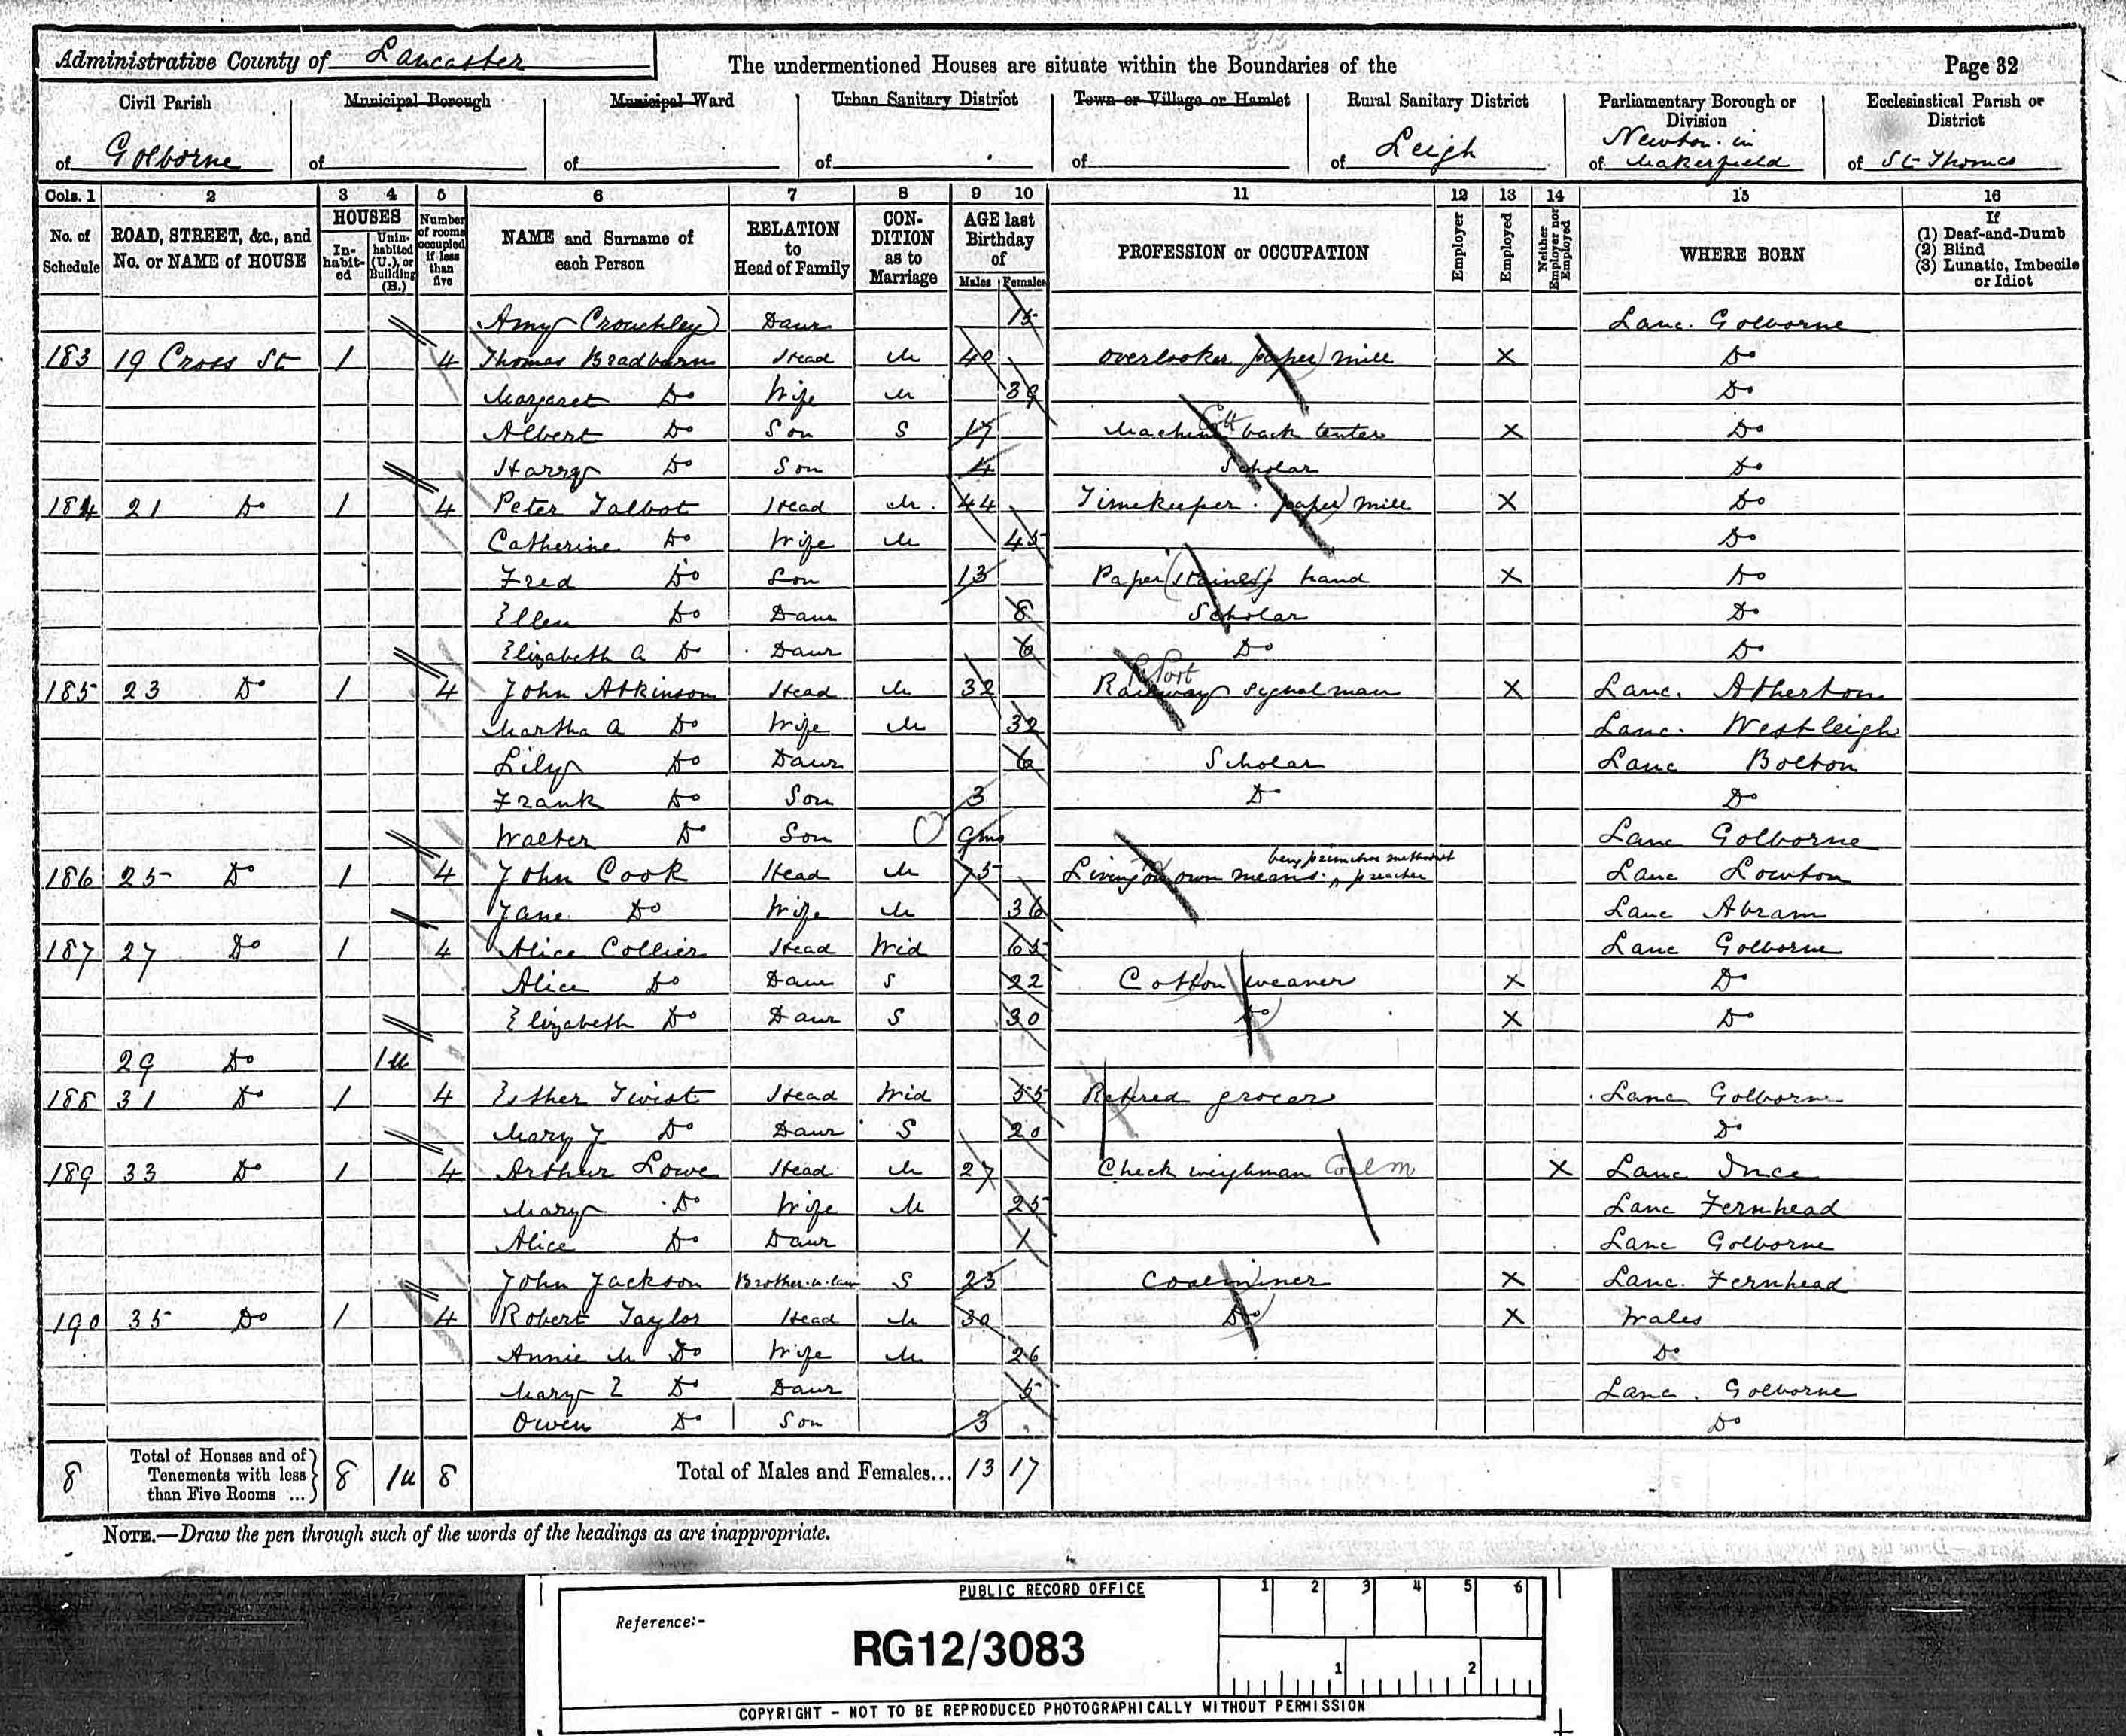 Administrative County of Lancaster
The undermentioned Houses are situate within the Boundaries of the
Page 32
Civil Parish Municipal Borough Municipal Ward Urban Sanitary District Town or Village or Hamlet Rural Sanitary District Parliamentary Borough or Division Ecclesiastical Parish or District
of Golborne of of of of of Leigh of Newton in Makerfield of St Thomas
Cols. 1 2 3 4 5 6 7 8 9 10 11 12 13 14 15 16
No. of Schedule ROAD, STREET, &c., and No. or NAME of HOUSE HOUSES Inhabited Uninhabited (U.), or Building (B.) Number of rooms occupied if less than five NAME and Surname of each Person RELATION to Head of Family CONDITION as to Marriage AGE last Birthday of Males Females PROFESSION or OCCUPATION Employer Employed Neither Employer nor Employed WHERE BORN If (1) Deaf-and-Dumb (2) Blind (3) Lunatic, Imbecile or Idiot
Amy Crouchley Daur 15 Lanc. Golborne
183 19 Cross St 1 4 Thomas Bradburn Head M 40 Overlooker paper mill X Do
Margaret Do Wife M 39 Do
Albert Do Son S 17 Machine Cott back tenter X Do
Harry Do Son 4 Scholar Do
184 21 Do 1 4 Peter Talbot Head M. 44 Timekeeper. paper mill X Do
Catherine Do Wife M 45 Do
Fred Do Son 13 Paper (stainers) hand X Do
Ellen Do Daur 8 Scholar Do
Elizabeth A Do Daur 6 Do Do
185 23 Do 1 4 John Atkinson Head M 32 Railway signalman X Lanc. Atherton
Martha A Do Wife M 32 Lanc. Westleigh
Lily Do Daur 6 Scholar Lanc Bolton
Frank Do Son 3 Do Do
Walter Do Son 9mo Lanc Golborne
186 25 Do 1 4 John Cook Head M 75 Living on own means. being primitive methodist preacher Lanc Lowton
Jane Do Wife M 36 Lanc Abram
187 27 Do 1 4 Alice Collier Head Wid 65 Lanc Golborne
Alice Do Daur S 22 Cotton weaver X Do
Elizabeth Do Daur S 30 Do X Do
29 Do 1u
188 31 Do 1 4 Esther Twist Head Wid 55 Retired grocer Lanc Golborne
Mary J Do Daur S 20 Do
189 33 Do 1 4 Arthur Lowe Head M 27 Check weighman Coal m X Lanc Ince
Mary Do Wife M 25 Lanc Fernhead
Alice Do Daur 1 Lanc Golborne
John Jackson Brother-in-law S 23 Coalminer X Lanc. Fernhead
190 35 Do 1 4 Robert Taylor Head M 30 Do X Wales
Annie M Do Wife M 26 Do
Mary E Do Daur 5 Lanc. Golborne
Owen Do Son 3 Do
8 Total of Houses and of Tenements with less than Five Rooms ... 8 1u 8 Total of Males and Females... 13 17
NOTE.—Draw the pen through such of the words of the headings as are inappropriate.
PUBLIC RECORD OFFICE
1 2 3 4 5 6
Reference:-
RG12/3083
1 2
COPYRIGHT - NOT TO BE REPRODUCED PHOTOGRAPHICALLY WITHOUT PERMISSION